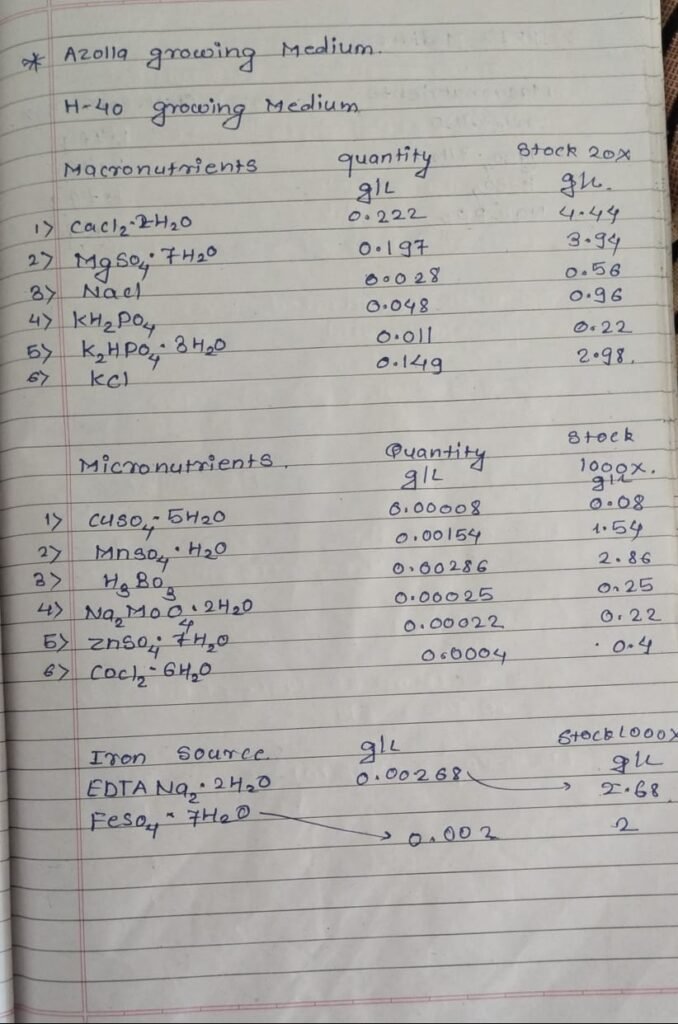 * Azolla growing Medium.
H-40 growing Medium
Macronutrients quantity Stock 20x
g/L g/L.
1) CaCl2·2H2O 0.222 4.44
2) MgSO4·7H2O 0.197 3.94
3) NaCl 0.028 0.56
4) KH2PO4 0.048 0.96
5) K2HPO4·3H2O 0.011 0.22
6) KCl 0.149 2.98.
Micronutrients. Quantity Stock
g/L 1000x.
g/L
1) CuSO4·5H2O 0.00008 0.08
2) MnSO4·H2O 0.00154 1.54
3) H3BO3 0.00286 2.86
4) Na2MoO4·2H2O 0.00025 0.25
5) ZnSO4·7H2O 0.00022 0.22
6) CoCl2·6H2O 0.0004 0.4
Iron source g/L Stock 1000x
g/L
EDTA Na2·2H2O 0.00268 → 2.68
FeSO4·7H2O → 0.002 2